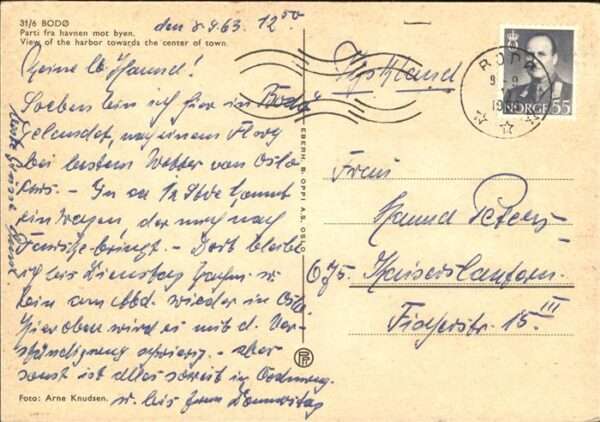 31/6 BODØ
Parti fra havnen mot byen.
View of the harbor towards the center of town.
den 8.9.63. 12⁵⁰
Meine lb. Hannel!
Soeben bin ich hier in Bodö
gelandet, nach einem Flug
bei bestem Wetter von Oslo
aus. - In ca 1/2 Stde kommt
ein Wagen, der mich nach
bringt. - Dort bleibe
ich bis Dienstag u.
bin am Abd. wieder in Oslo.
Hier oben wird es mit d. Ver-
ständigung schwierig. - aber
sonst ist alles soweit in Ordnung.
u. bis zum Donnerstag
Foto: Arne Knudsen.
EBERH. B. OPPI A.S. OSLO
BODØ
NORGE 55
Frau
Hannel Peters
675 Kaiserslautern
Fischerstr. 15 III